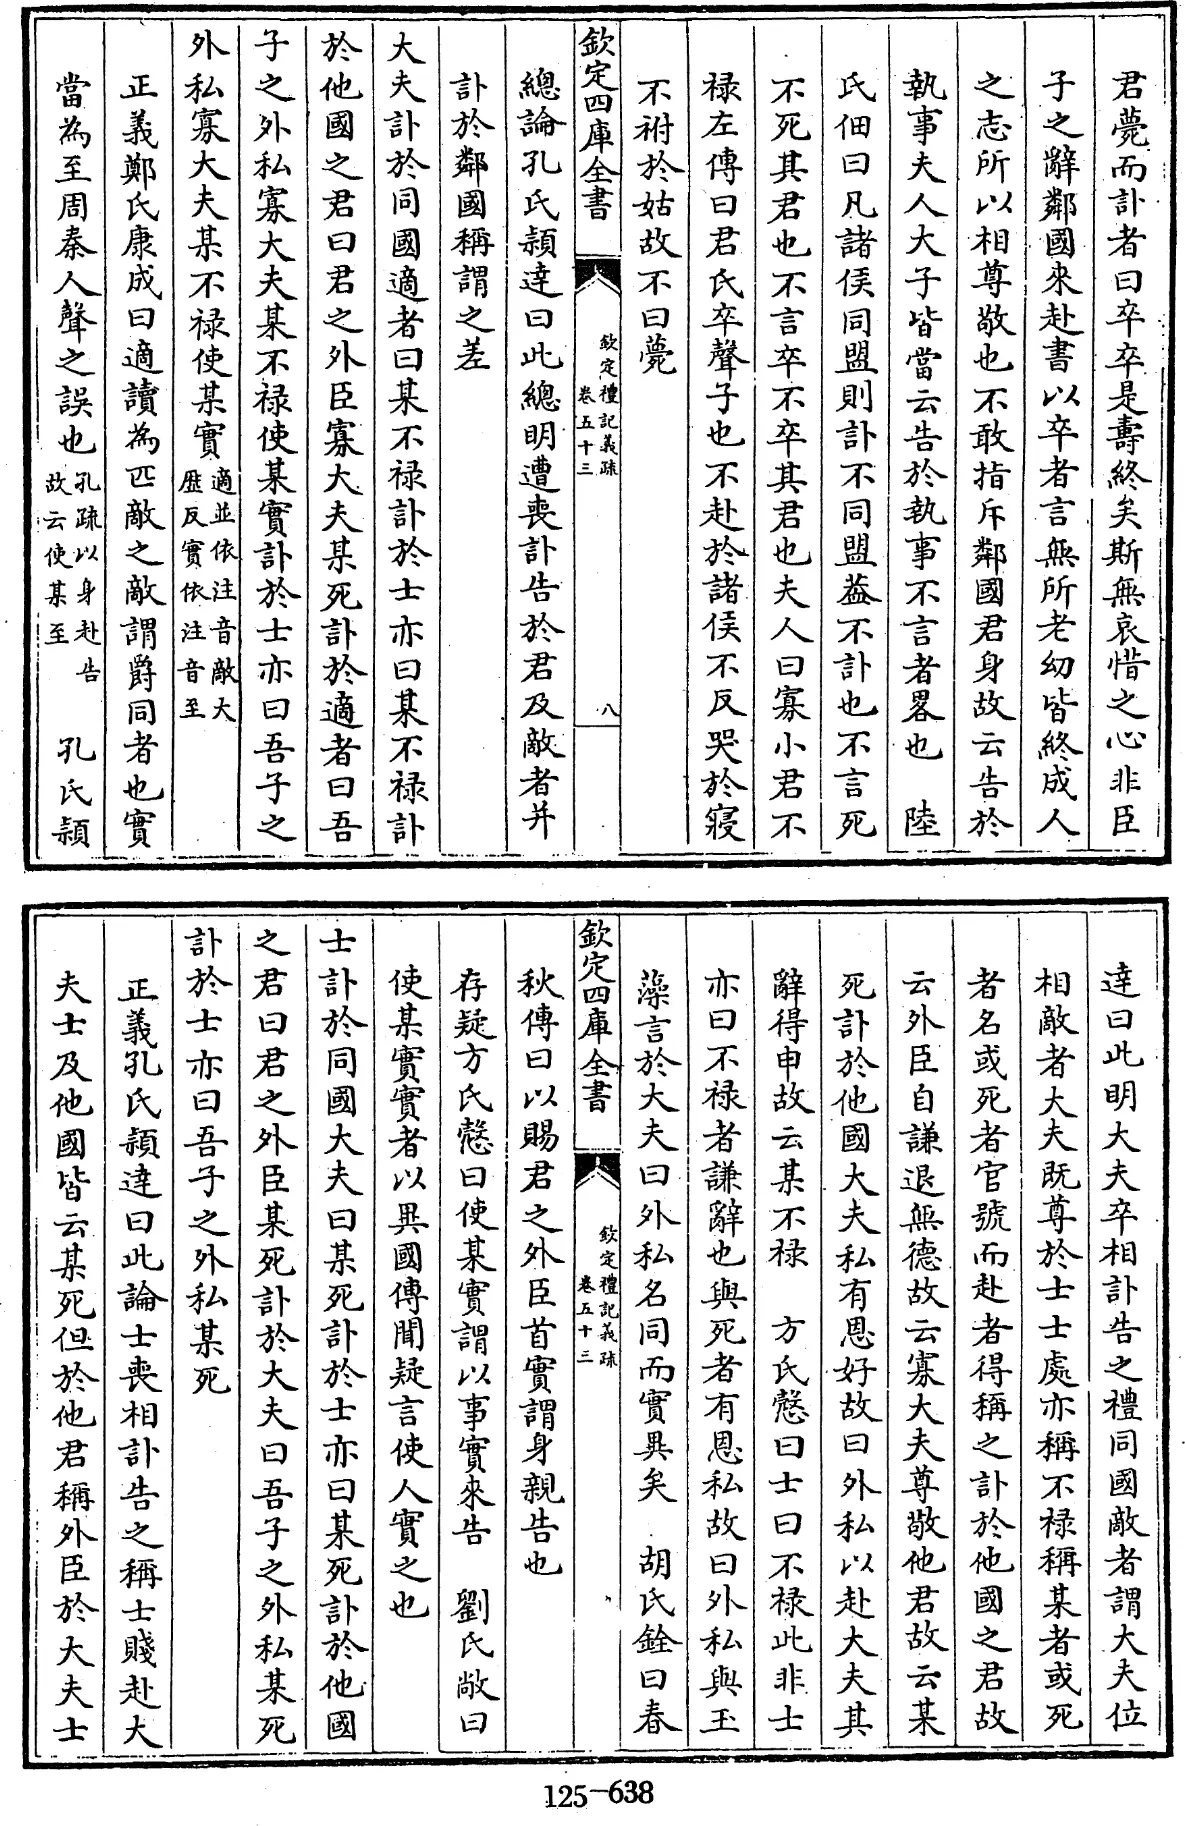 君薨而訃者曰卒卒是壽終矣斯無哀惜之心非臣
子之辭鄰國來赴書以卒者言無所老幼皆終成人
之志所以相尊敬也不敢指斥鄰國君身故云告於
執事夫人大子皆當云告於執事不言者畧也　陸
氏佃曰凡諸侯同盟則訃不同盟蓋不訃也不言死
不死其君也不言卒不卒其君也夫人曰寡小君不
祿左傳曰君氏卒聲子也不赴於諸侯不反哭於寢
不祔於姑故不曰薨
欽定四庫全書
欽定禮記義疏
卷五十三
八
總論孔氏穎達曰此總明遭喪訃告於君及敵者并
訃於鄰國稱謂之差
大夫訃於同國適者曰某不祿訃於士亦曰某不祿訃
於他國之君曰君之外臣寡大夫某死訃於適者曰吾
子之外私寡大夫某不祿使某實訃於士亦曰吾子之
外私寡大夫某不祿使某實適並依注音敵大
歷反實依注音至
正義鄭氏康成曰適讀為匹敵之敵謂爵同者也實
當為至周秦人聲之誤也孔疏以身赴告
故云使某至　孔氏穎
達曰此明大夫卒相訃告之禮同國敵者謂大夫位
相敵者大夫既尊於士士處亦稱不祿稱某者或死
者名或死者官號而赴者得稱之訃於他國之君故
云外臣自謙退無德故云寡大夫尊敬他君故云某
死訃於他國大夫私有恩好故曰外私以赴大夫其
辭得申故云某不祿　方氏慤曰士曰不祿此非士
亦曰不祿者謙辭也與死者有恩私故曰外私與玉
藻言於大夫曰外私名同而實異矣　胡氏銓曰春
欽定四庫全書
欽定禮記義疏
卷五十三
秋傳曰以賜君之外臣首實謂身親告也
存疑方氏慤曰使某實謂以事實來告　劉氏敞曰
使某實實者以異國傳聞疑言使人實之也
士訃於同國大夫曰某死訃於士亦曰某死訃於他國
之君曰君之外臣某死訃於大夫曰吾子之外私某死
訃於士亦曰吾子之外私某死
正義孔氏穎達曰此論士喪相訃告之稱士賤赴大
夫士及他國皆云某死但於他君稱外臣於大夫士
125-638